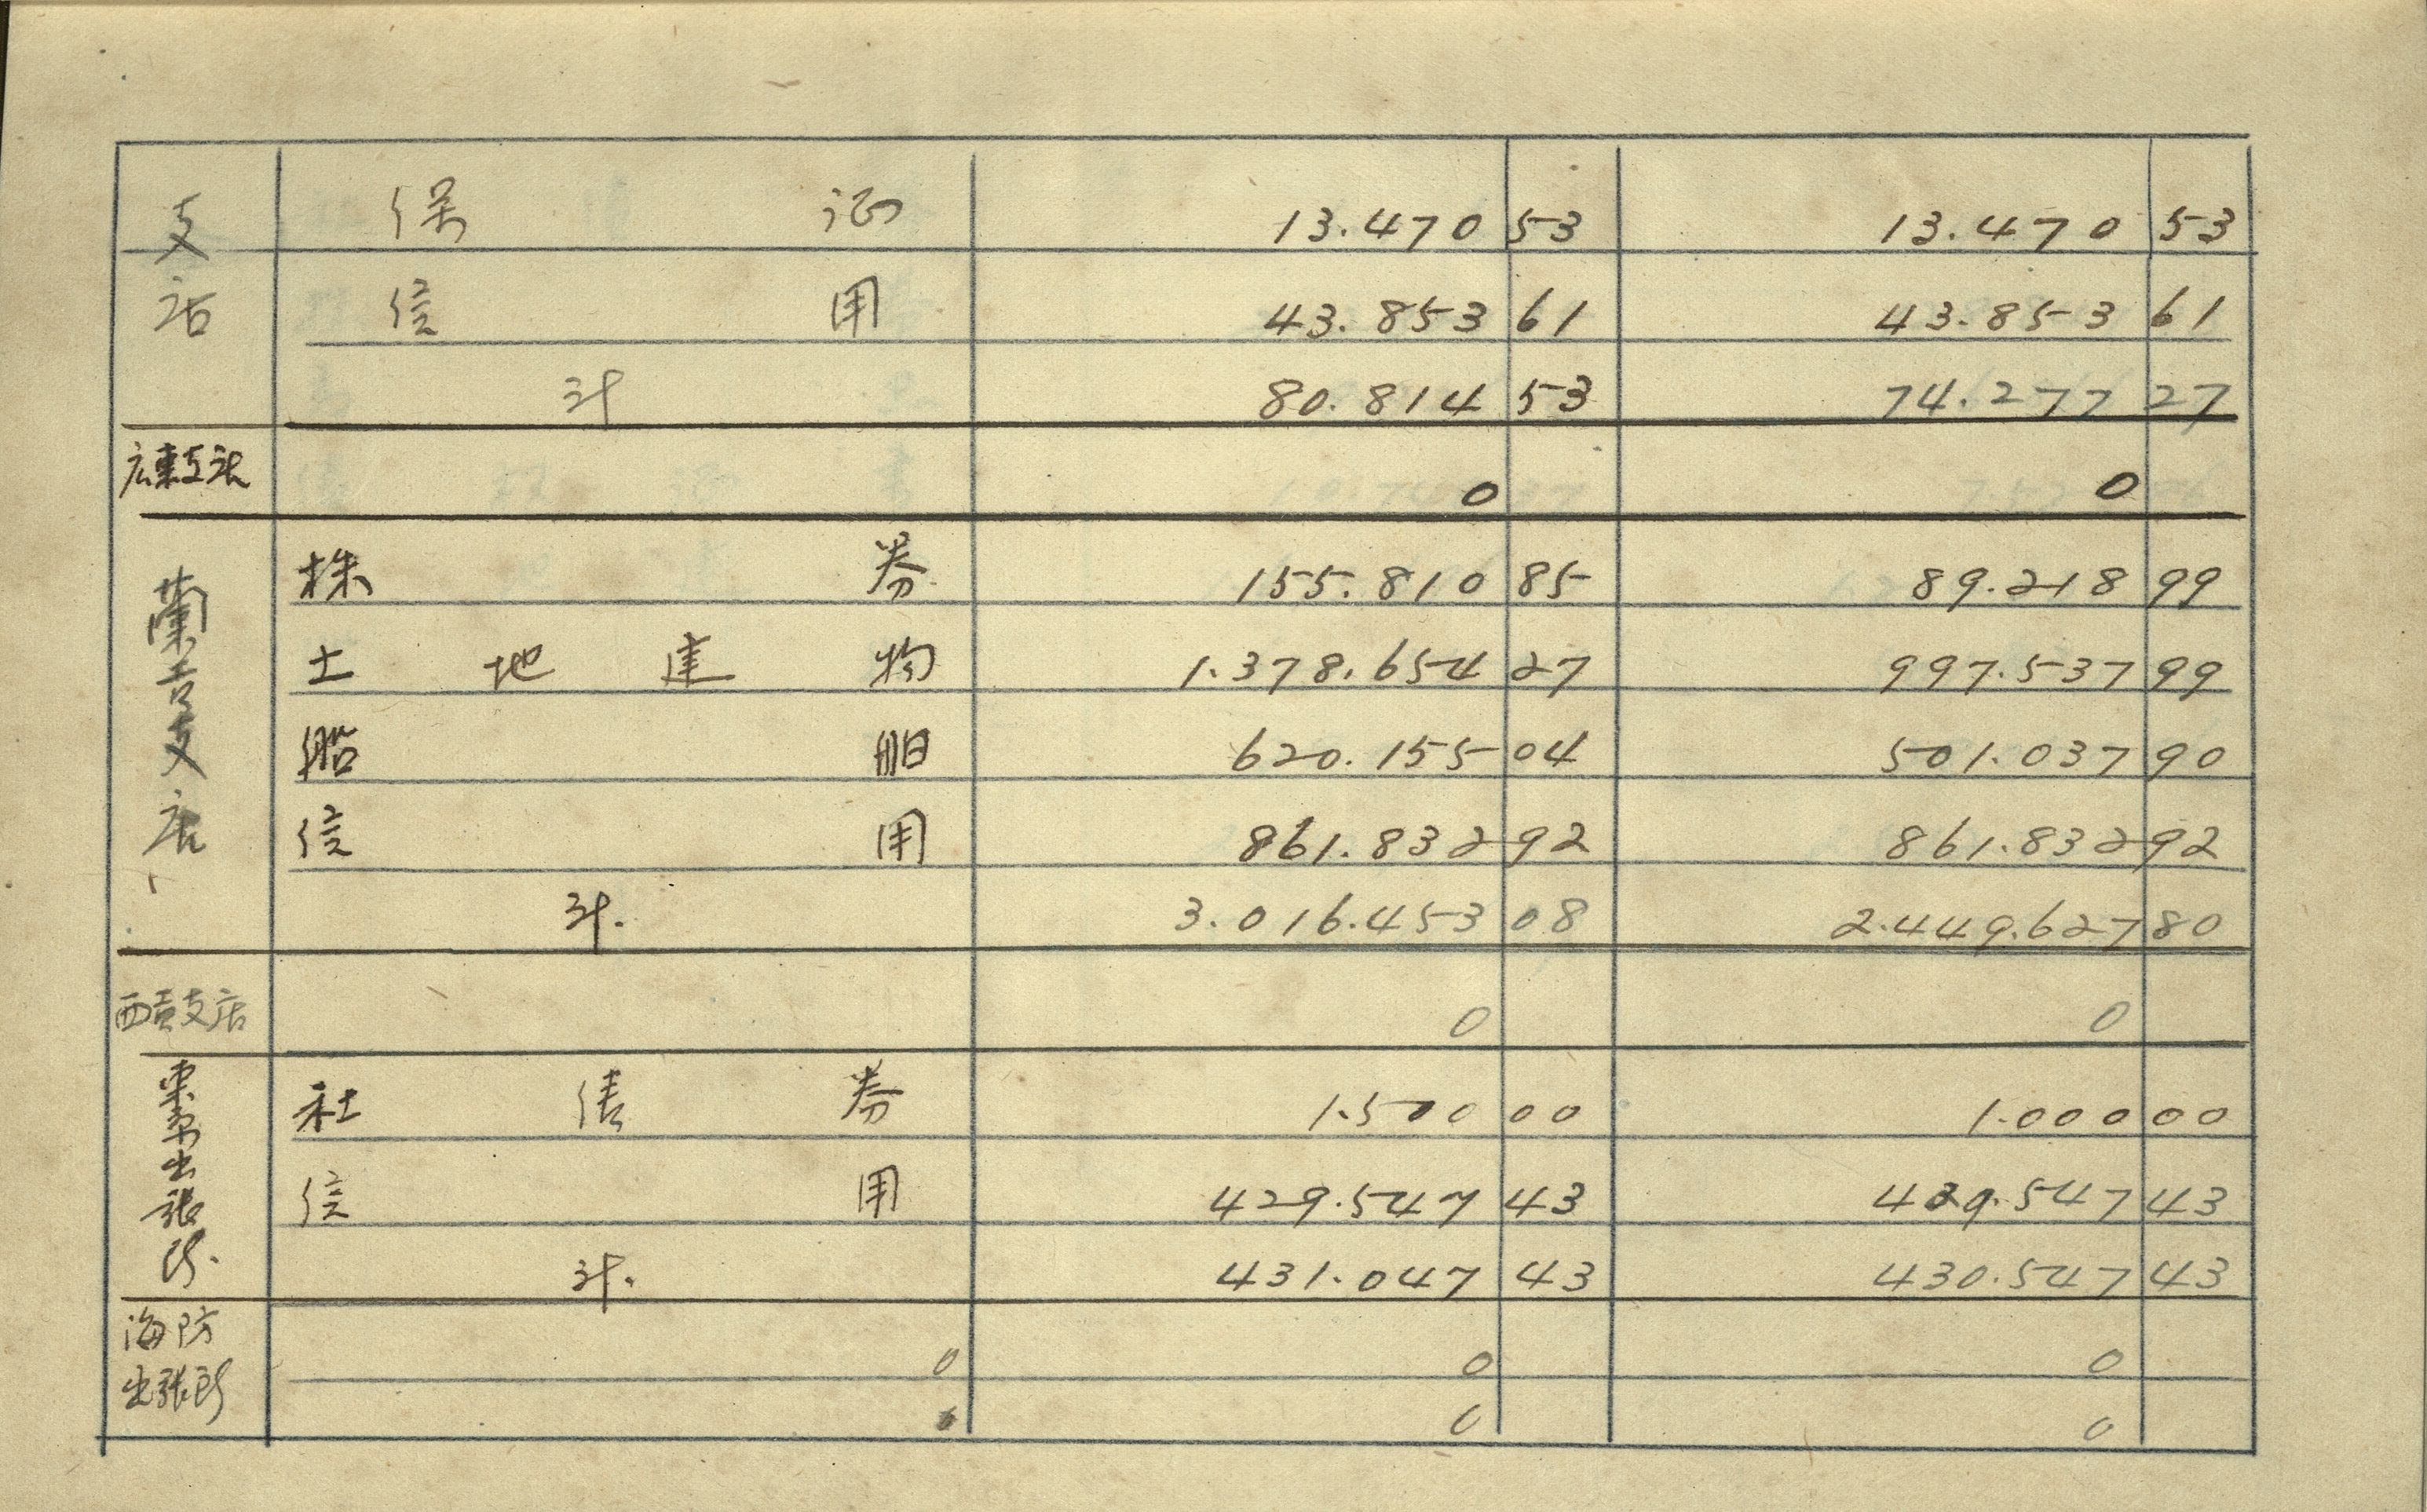 支店 保証 13.470 53 13.470 53
信用 43.853 61 43.853 61
計 80.814 53 74.277 27
広東支店 0 0
蘭貢支店 株券 155.810 85 89.218 99
土地建物 1.378.654 27 997.537 99
船舶 620.155 04 501.037 90
信用 861.832 92 861.832 92
計. 3.016.453 08 2.449.627 80
西貢支店 0 0
東京出張所. 社債券 1.500 00 1.000 00
信用 429.547 43 429.547 43
計. 431.047 43 430.547 43
海防 0 0 0
出張所 0 0 0